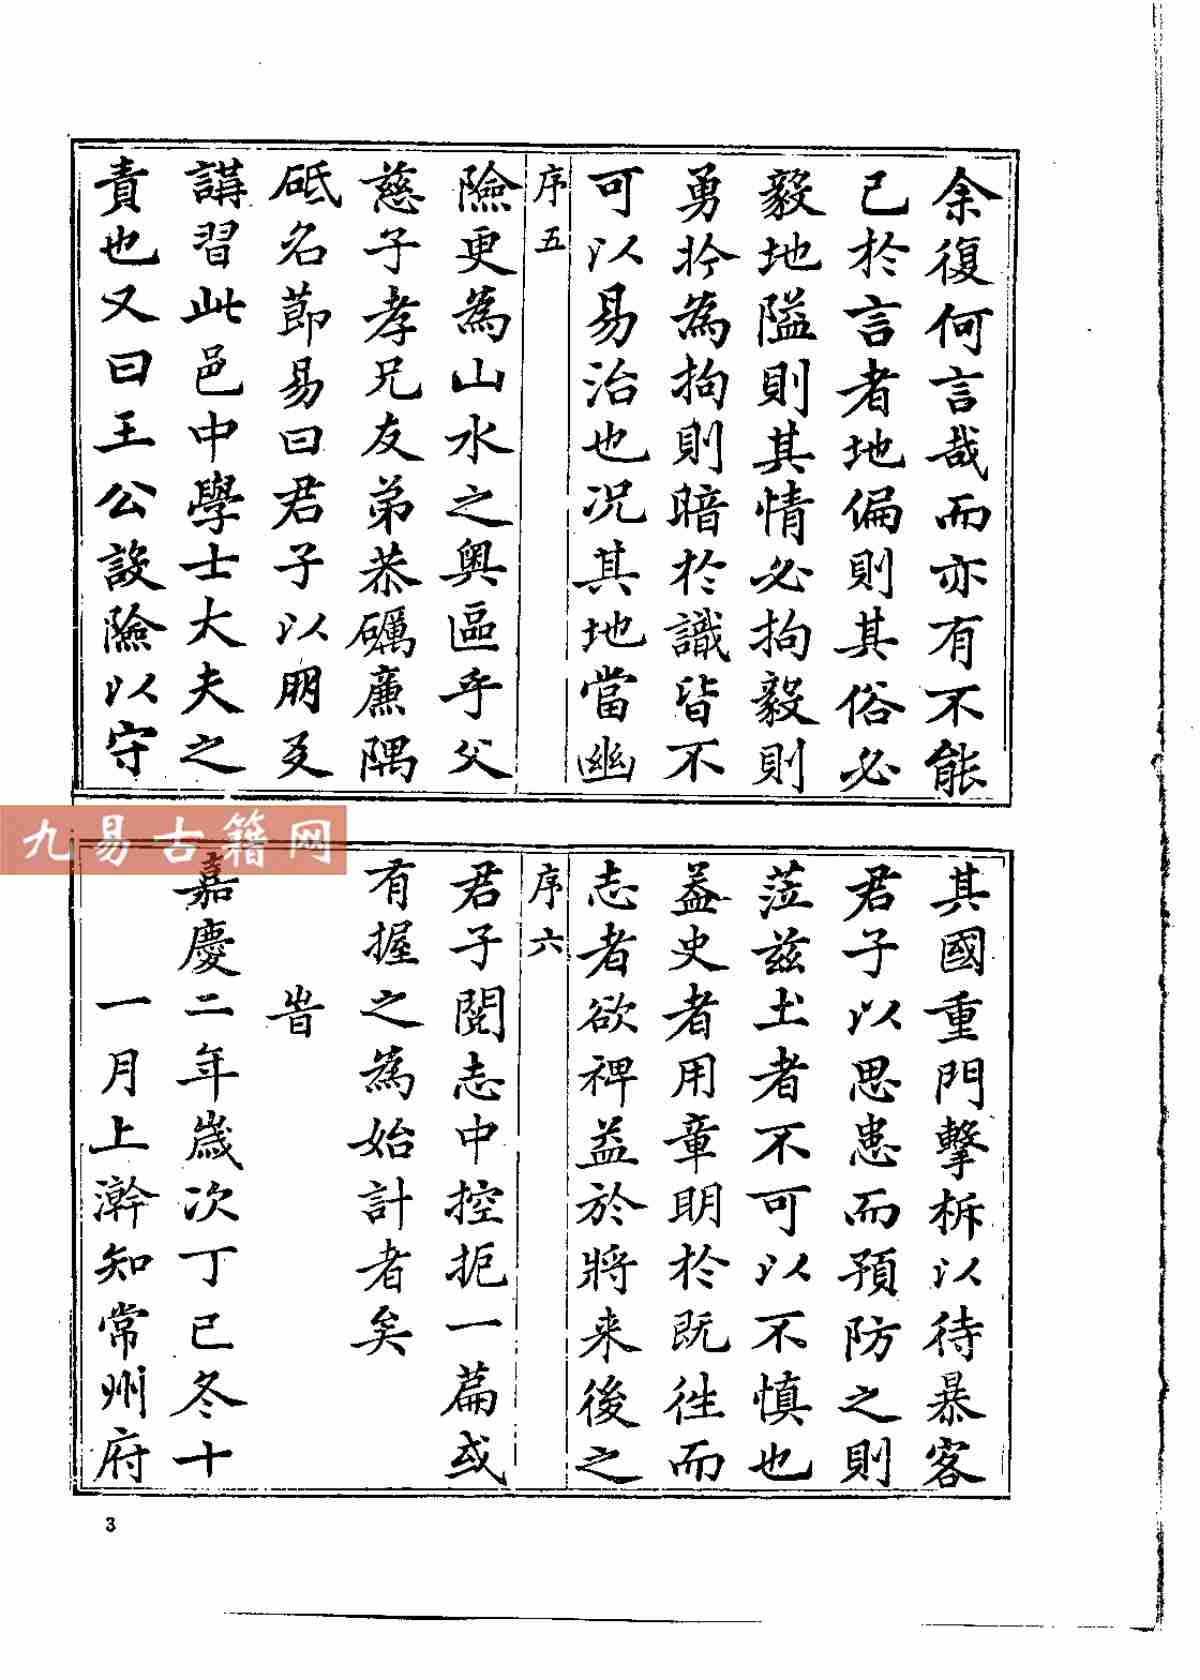 余復何言哉而亦有不能
已於言者地偏則其俗必
毅地隘則其情必拘毅則
勇矜為拘則暗於識皆不
可以易治也况其地當幽
序五
險更為山水之奧區乎父
慈子孝兄友弟恭礪廉隅
砥名節易曰君子以朋友
講習此邑中學士大夫之
責也又曰王公設險以守
其國重門擊柝以待暴客
君子以思患而預防之則
蒞兹土者不可以不慎也
葢史者用章明於既徃而
志者欲裨益於將来後之
序六
君子閱志中控扼一篇或
有握之為始計者矣
旹
嘉慶二年歲次丁巳冬十
一月上澣知常州府
九易古籍网
3